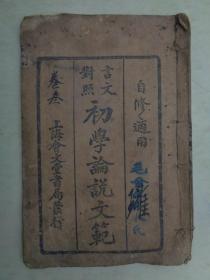 自修適用
言文
對照
初學論說文範
卷叁
上海會文堂書局發行